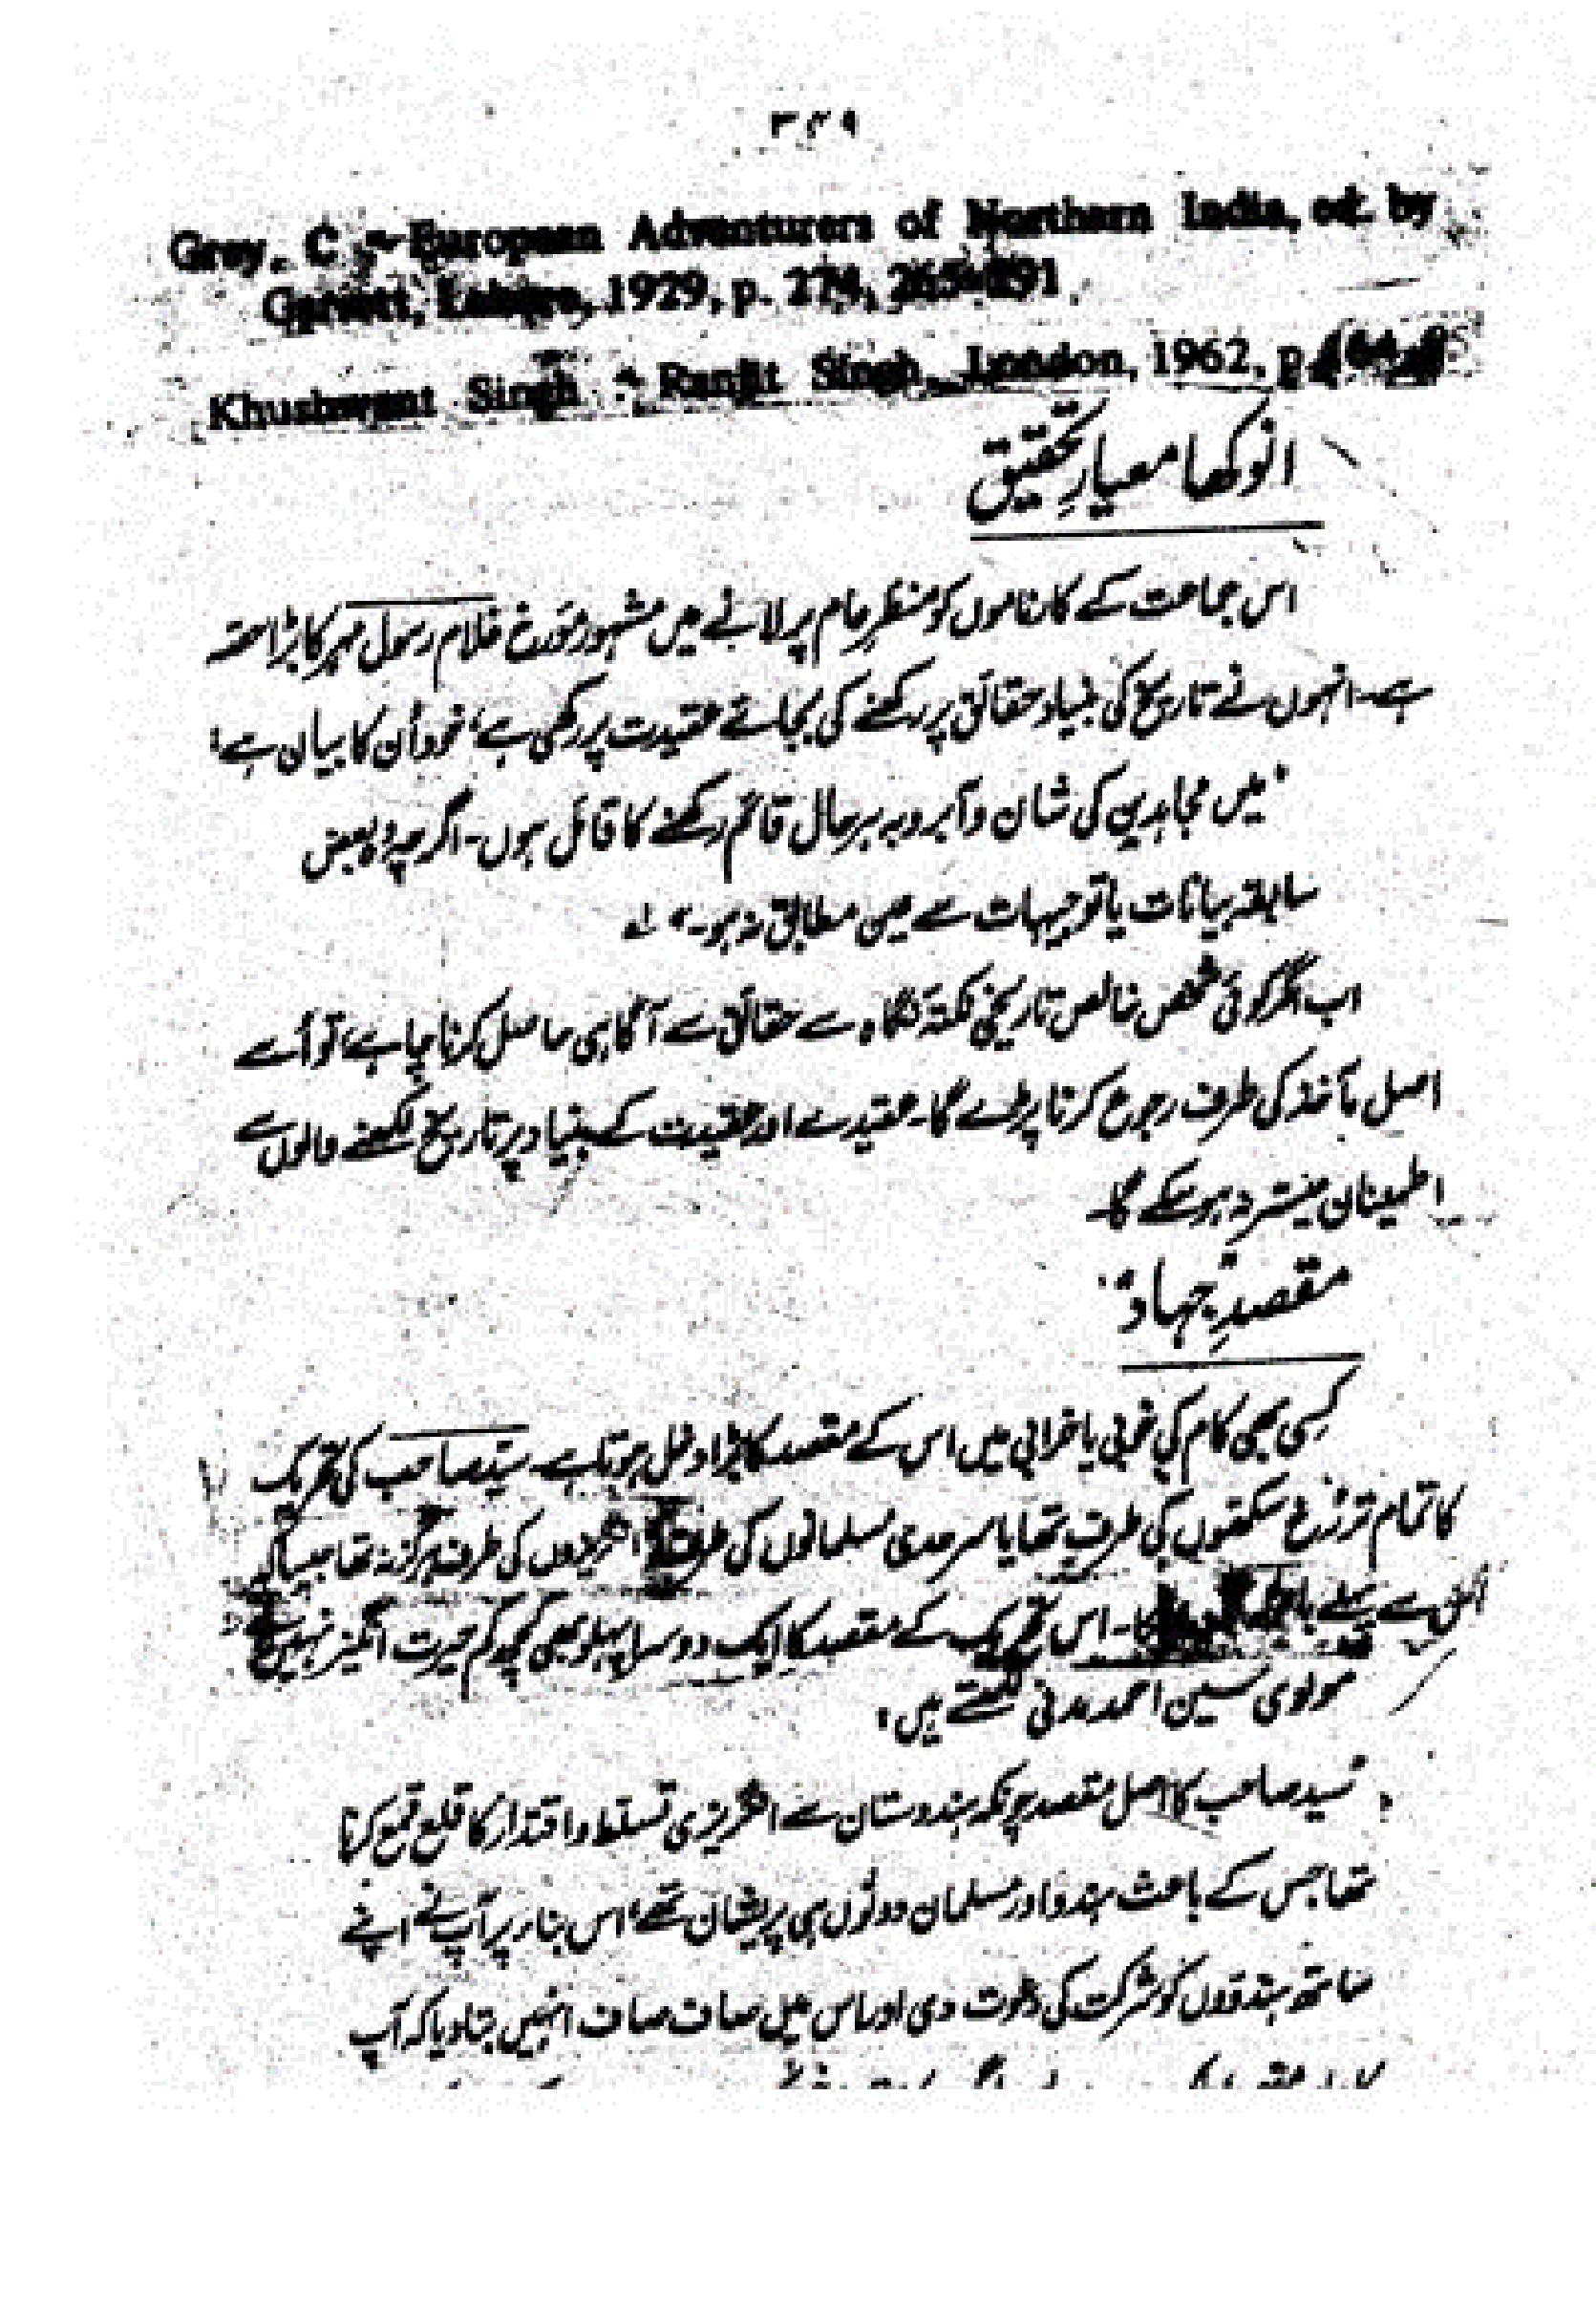 ۳۴۹
Grey. C :- European Adventurers of Northern India, ed. by
Garrett, Lahore, 1929, p. 274, 265-291
Khushwant Singh :- Ranjit Singh, London, 1962, p.
انوکھا معیارِ تحقیق
اس جماعت کے کارناموں کو منظرِ عام پر لانے میں مشہور مؤرخ غلام رسول مہر کا بڑا حصہ
ہے۔ انہوں نے تاریخ کی بنیاد حقائق پر رکھنے کی بجائے عقیدت پر رکھی ہے، خود اُن کا بیان ہے،
"میں مجاہدین کی شان و آبرو بہر حال قائم رکھنے کا قائل ہوں۔ اگرچہ وُہ بعض
سابقہ بیانات یا توجیہات سے عین مطابق نہ ہو۔" ۱؎
اب اگر کوئی شخص خالص تاریخی نکتۂ نگاہ سے حقائق سے آگاہی حاصل کرنا چاہے، تو اُسے
اصل مآخذ کی طرف رجوع کرنا پڑے گا۔ عقیدے اور عقیدت کے بنیاد پر تاریخ لکھنے والوں سے
اطمینان میسّر نہ ہو سکے گا۔
مقصدِ "جہاد"
کسی بھی کام کی خوبی یا خرابی میں اس کے مقصد کا بڑا دخل ہوتا ہے۔ سیّد صاحب کی تحریک
کا تمام تر رُخ سکھوں کی طرف تھا یا سرحدی مسلمانوں کی طرف انگریزوں کی طرف ہرگز نہ تھا جیسا کہ
اس سے پہلے اس تحریک کے مقصد کا ایک دوسرا پہلو بھی کچھ کم حیرت انگیز نہیں
مولوی حسین احمد مدنی لکھتے ہیں،
"سید صاحب کا اصل مقصد چونکہ ہندوستان سے انگریزی تسلط و اقتدار کا قلع قمع کرنا
تھا جس کے باعث ہندو اور مسلمان دونوں ہی پریشان تھے، اس بناء پر آپ نے اپنے
ساتھ ہندوؤں کو شرکت کی دعوت دی اور اس میں صاف صاف انہیں بتا دیا کہ آپ